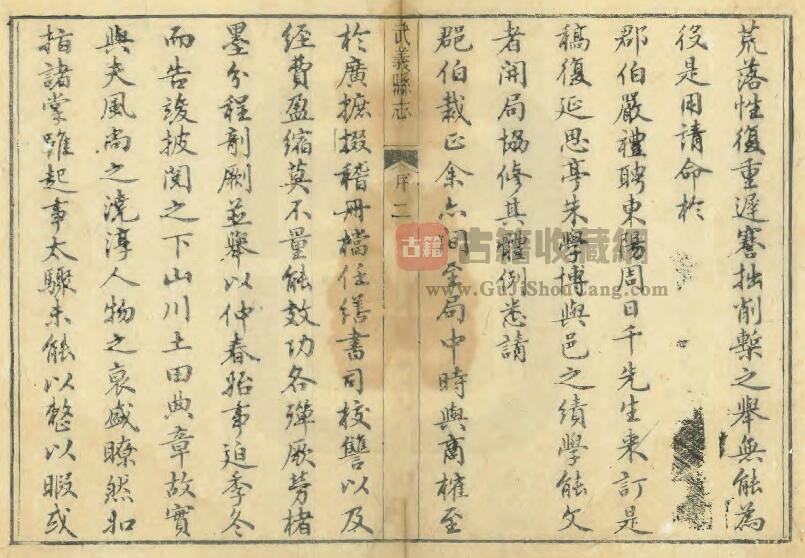 荒落性復重遲謇拙削槧之舉無能為
役是用請命於
郡伯嚴禮聘東陽周日千先生來訂是
稿復延思亭朱學博與邑之績學能文
者開局協修其體例悉請
郡伯裁正余亦間至局中時與商榷至
武義縣志
序
二
於廣摭掇稽冊檔任繕書司校讐以及
經費盈縮莫不量能效功各殫厥勞楮
墨分程剞劂並舉以仲春始事迨季冬
而告竣披閱之下山川土田典章故實
與夫風尚之澆淳人物之衰盛瞭然如
指諸掌雖起事太驟未能以整以暇或
古籍
古籍收藏網
www.GuJiShouCang.com